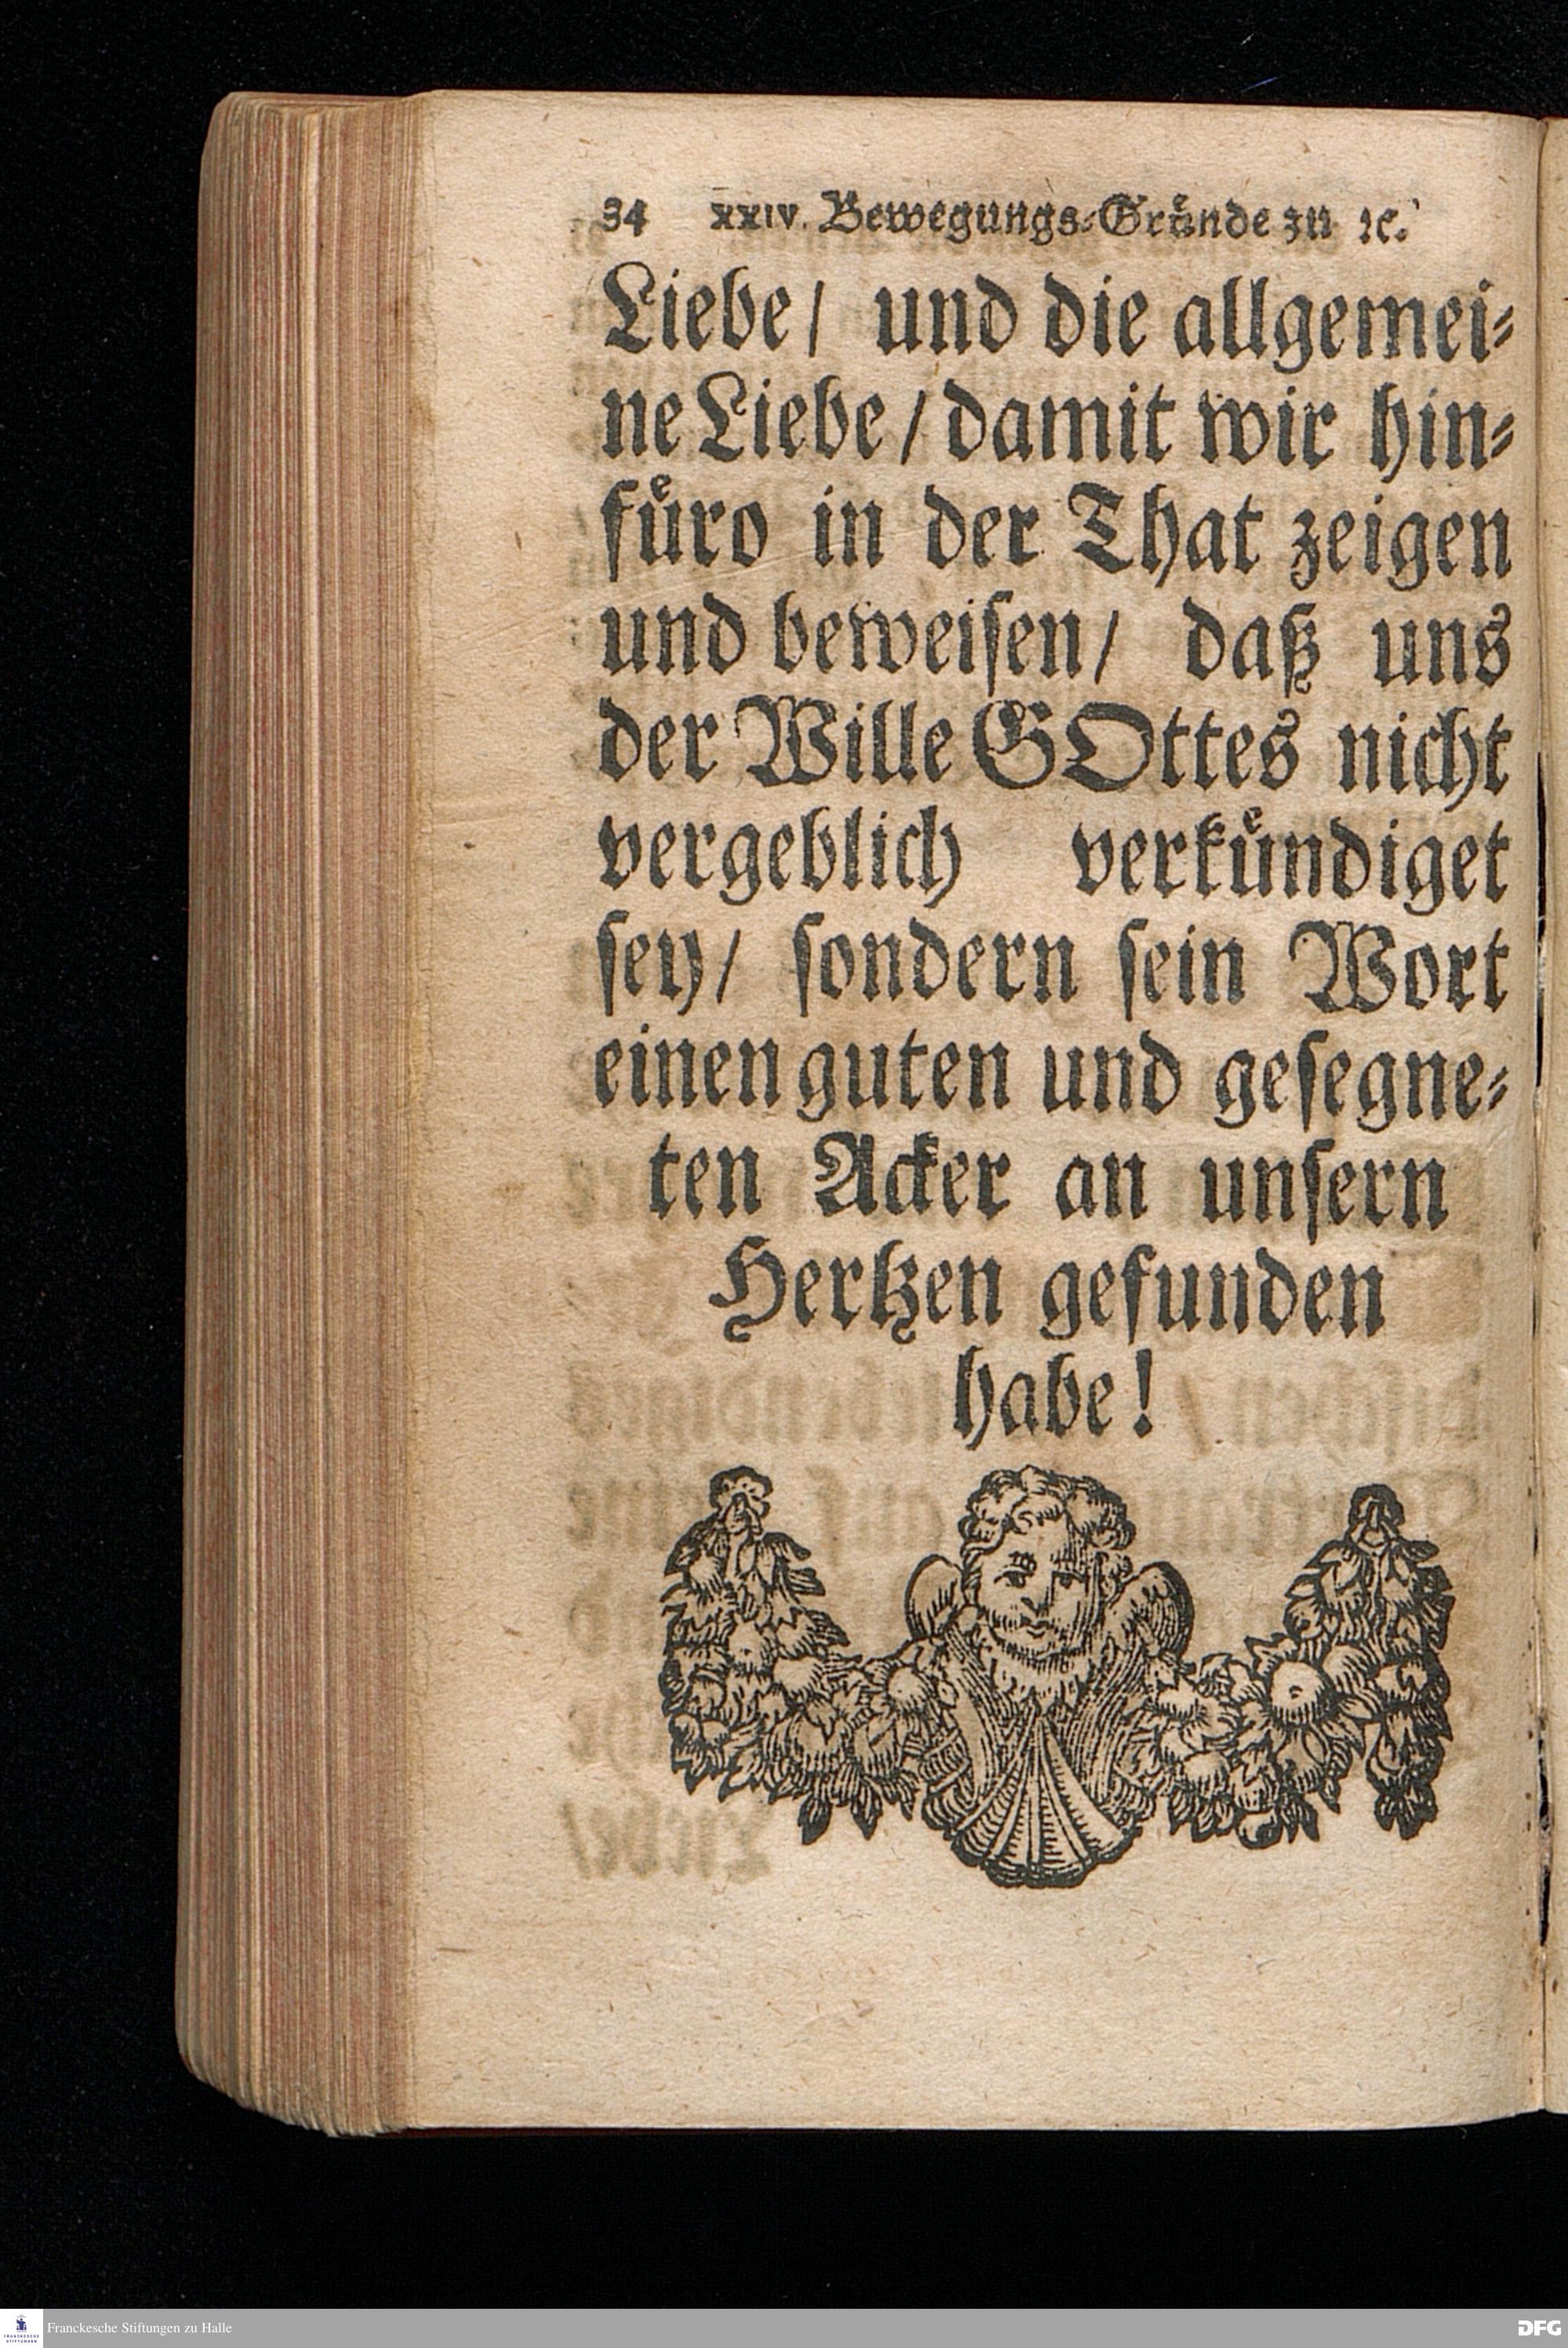 34 xxiv. Bewegungs⸗Gruͤnde zu ꝛc.
Liebe/ und die allgemei⸗
ne Liebe/ damit wir hin⸗
fuͤro in der That zeigen
und beweiſen/ daß uns
der Wille GOttes nicht
vergeblich verkuͤndiget
ſey/ ſondern ſein Wort
einen guten und geſegne⸗
ten Acker an unſern
Hertzen gefunden
habe!
Franckesche Stiftungen zu Halle
DFG